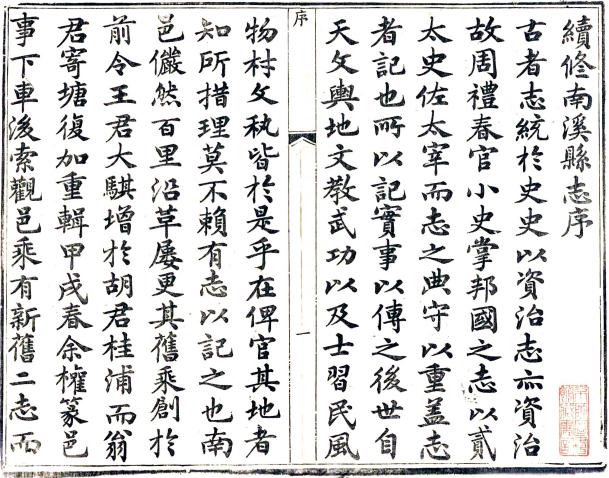 續修南溪縣志序
古者志統於史史以資治志亦資治
故周禮春官小史掌邦國之志以貳
太史佐太宰而志之典守以重蓋志
者記也所以記實事以傳之後世自
天文輿地文教武功以及士習民風
序
一
物材文秇皆於是乎在俾官其地者
知所措理莫不賴有志以記之也南
邑儼然百里沿革屡更其舊乘創於
前令王君大騏增於胡君桂浦而翁
君寄塘復加重輯甲戌春余權篆邑
事下車後索觀邑乘有新舊二志而